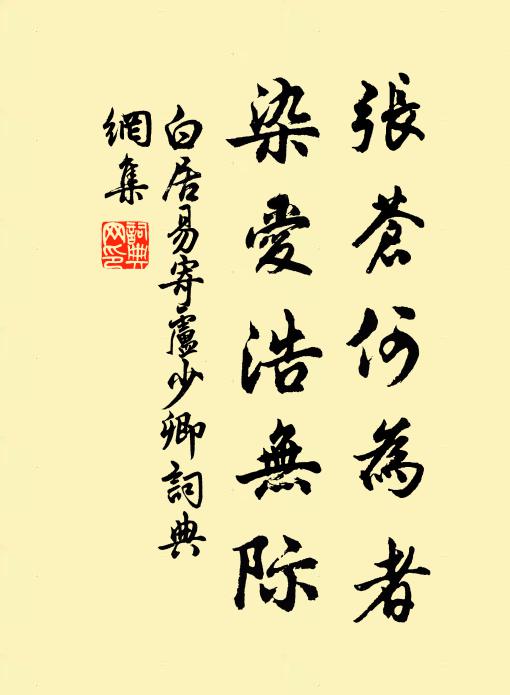 張蒼何為者
染愛浩無际
白居易寄盧少卿詞典
網集
詞典
网印